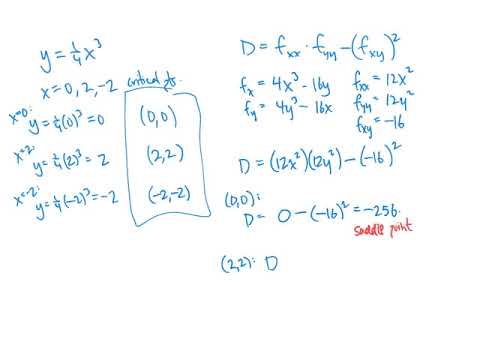 y = ¼x³
x = 0, 2, -2
critical pts.
x=0:
y = ¼(0)³ = 0
(0,0)
x=2:
y = ¼(2)³ = 2
(2,2)
x=-2:
y = ¼(-2)³ = -2
(-2,-2)
D = fxx · fyy - (fxy)²
fx = 4x³ - 16y
fxx = 12x²
fy = 4y³ - 16x
fyy = 12y²
fxy = -16
D = (12x²)(12y²) - (-16)²
(0,0):
D = 0 - (-16)² = -256.
saddle point
(2,2): D